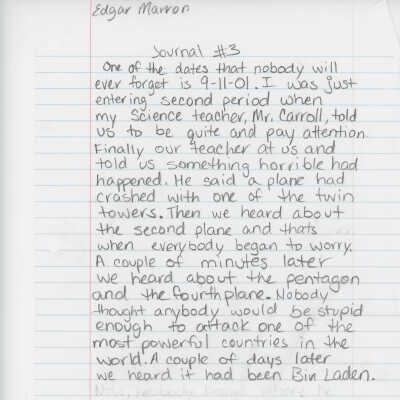 Edgar Marron
Journal #3
One of the dates that nobody will
ever forget is 9-11-01. I was just
entering second period when
my Science teacher, Mr. Carroll, told
us to be quite and pay attention.
Finally our teacher at us and
told us something horrible had
happened. He said a plane had
crashed with one of the twin
towers. Then we heard about
the second plane and thats
when everybody began to worry.
A couple of minutes later
we heard about the pentagon
and the fourth plane. Nobody
thought anybody would be stupid
enough to attack one of the
most powerful countries in the
world. A couple of days later
we heard it had been Bin Laden.